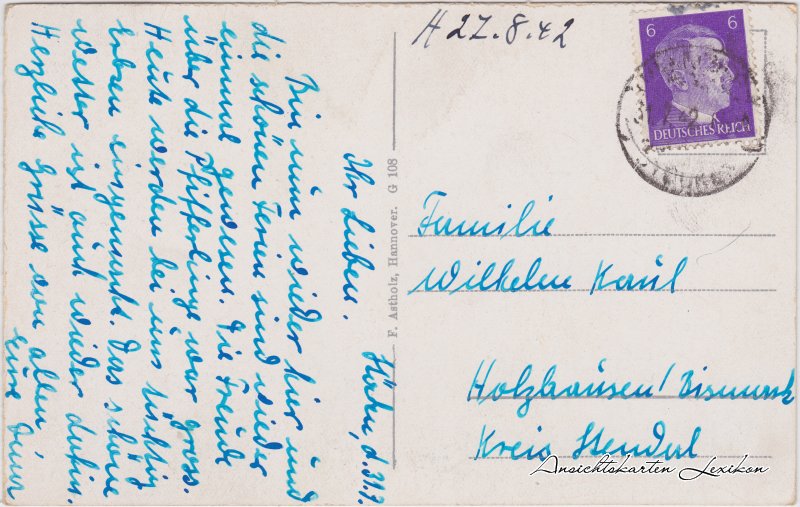 H 27.8.42
6 6
DEUTSCHES REICH
Familie
Wilhelm Kaul
Holzhausen/Bismark
Kreis Stendal
Ansichtskarten Lexikon
F. Astholz, Hannover. G 108
d. 31.7.
Ihr Lieben.
Bin nun wieder hier und
die schönen Ferien sind wieder
einmal gewesen. Die Freude
über die Pfifferlinge war gross.
Heute werden bei uns tüchtig
Erbsen eingemacht. Das schöne
Wetter ist auch wieder dahin.
Herzliche Grüsse von allen
eure